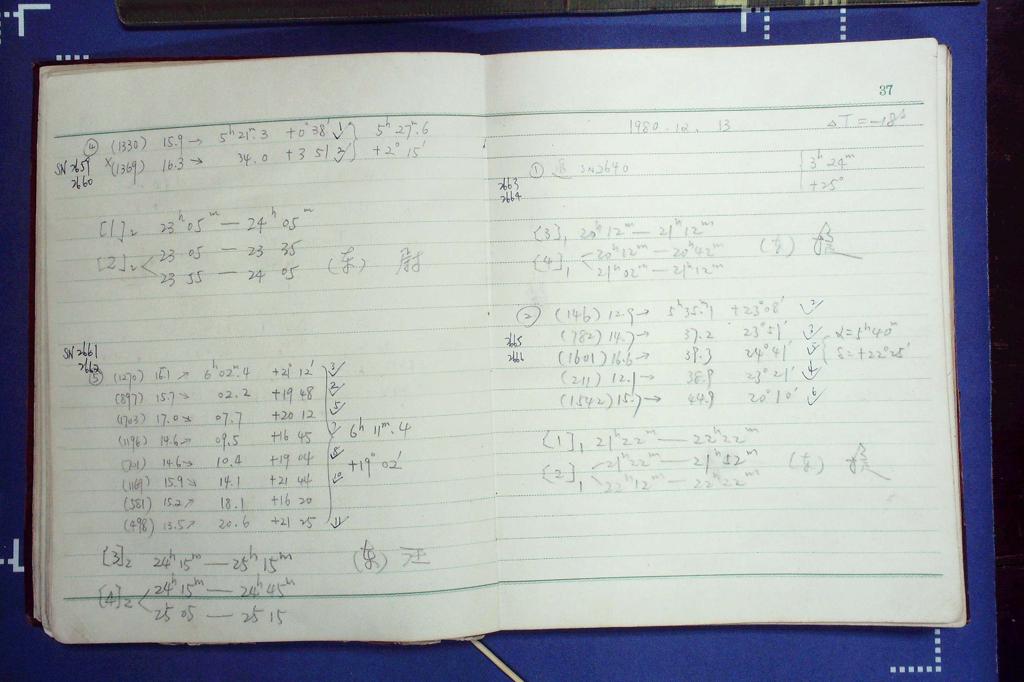 ④ (1330) 15.9→ 5ʰ21ᵐ.3 +0°38′ 5ʰ27ᵐ.6
SN2659 ×(1369) 16.3→ 34.0 +3 51 +2°15′
2660
[1]₂ 23ʰ05ᵐ — 24ʰ05ᵐ
[2]₂ 23 05 — 23 35
23 55 — 24 05 (东)
SN2661
2662
⑤ (1270) 16.1↗ 6ʰ02ᵐ.4 +21°12′ 3
(897) 15.7↘ 02.2 +19 48 2
(1703) 17.0 07.7 +20 12 5
(1196) 14.6→ 09.5 +16 45 6ʰ11ᵐ.4
(701) 14.6↘ 10.4 +19 04 +19°02′
(1169) 15.9↘ 14.1 +21 44 10
(581) 15.2↗ 18.1 +16 20
(498) 13.5↗ 20.6 +21 25 11
[3]₂ 24ʰ15ᵐ — 25ʰ15ᵐ (东) 汪
[4]₂ 24ʰ15ᵐ — 24ʰ45ᵐ
25 05 — 25 15
37
1980.12.13 ΔT=-18ˢ
① SN2640 3ʰ24ᵐ
2663 +25°
2664
[3]₁ 20ʰ12ᵐ — 21ʰ12ᵐ
[4]₁ 20ʰ12ᵐ — 20ʰ42ᵐ
21ʰ02ᵐ — 21ʰ12ᵐ
② (146) 12.9→ 5ʰ35ᵐ.1 +23°08′ 2
2665 (782) 14.7→ 37.2 23°51′ 3 α=5ʰ40ᵐ
2666 (1601) 16.6→ 39.3 24°41′ 5 δ=+22°25′
(211) 12.1→ 38.9 23°21′ 4
(1542) 15.7→ 44.9 20°10′ 6
[1]₁ 21ʰ22ᵐ — 22ʰ22ᵐ
[2]₁ 21ʰ22ᵐ — 21ʰ52ᵐ
22ʰ12ᵐ — 22ʰ22ᵐ